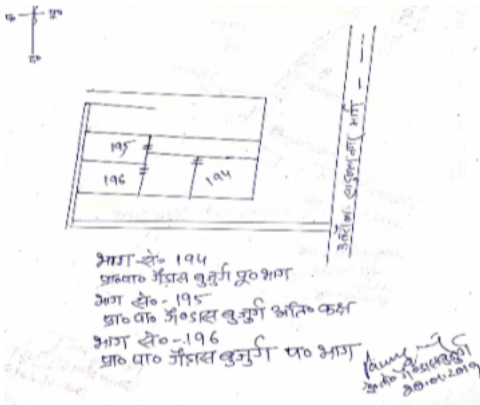 प०
पू०
द०
195
196
194
मार्ग
भाग सं०- 194
प्रा०पा० गैंडास बुजुर्ग पू० भाग
भाग सं०- 195
प्रा० पा० गैंडास बुजुर्ग अति० कक्ष
भाग सं०- 196
प्रा० पा० गैंडास बुजुर्ग प० भाग